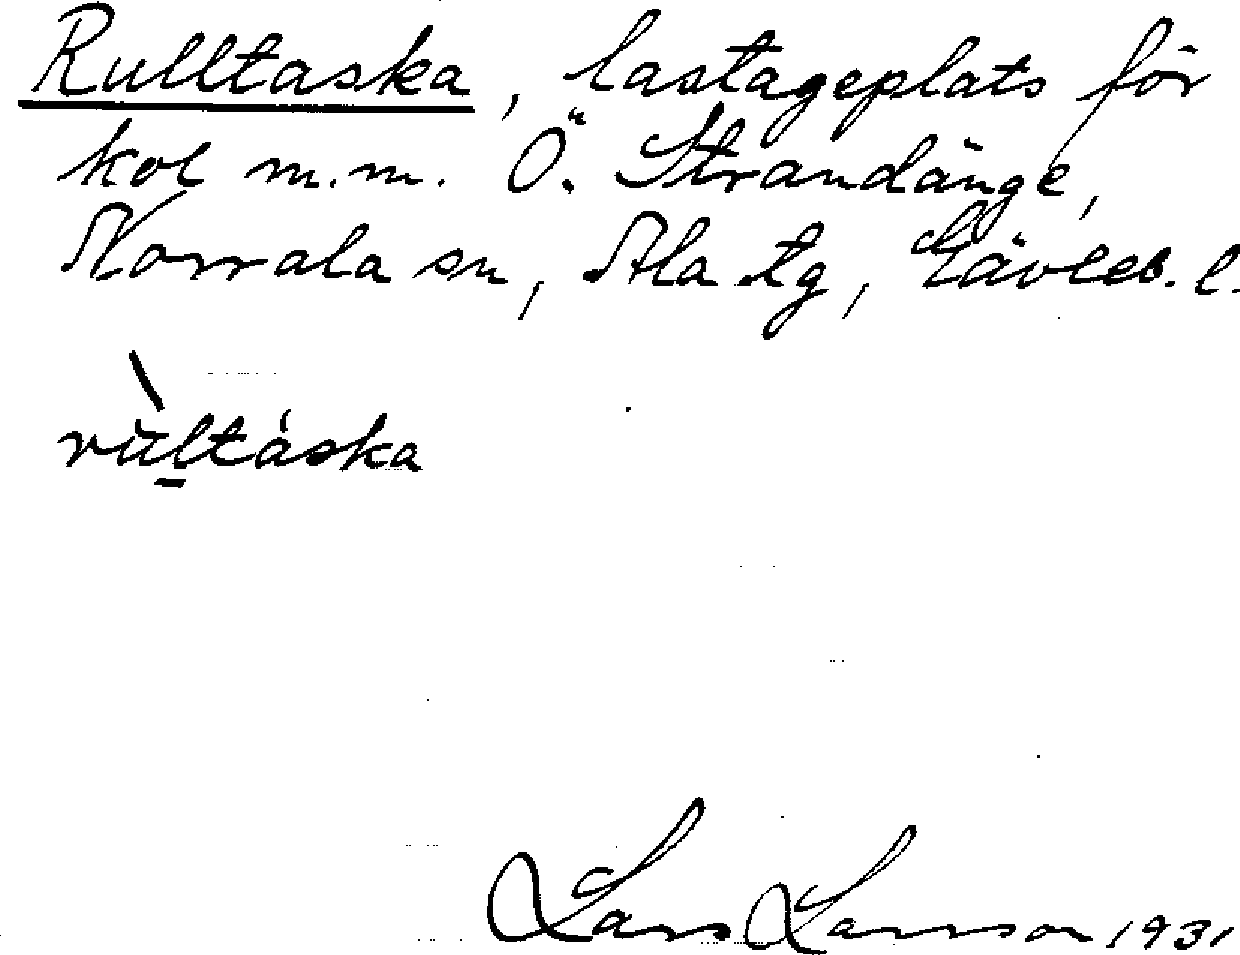 Rulltaska, lastageplats för
kol m.m. Ö. Strandänge,
Norrala sn, Ala tg, Gävleb. l.
rultáska
Lars Larsson 1931